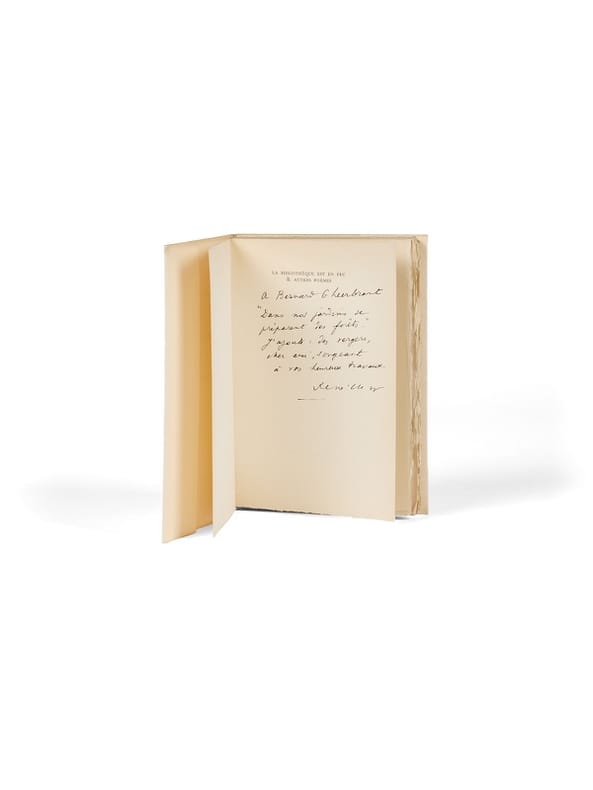 LA BIBLIOTHÈQUE EST EN FEU
& AUTRES POÈMES
A Bernard Gheerbrant
"Dans nos jardins se
préparent des forêts"
J'ajoute : des vergers,
cher ami, songeant
à vos heureux travaux.
René Char